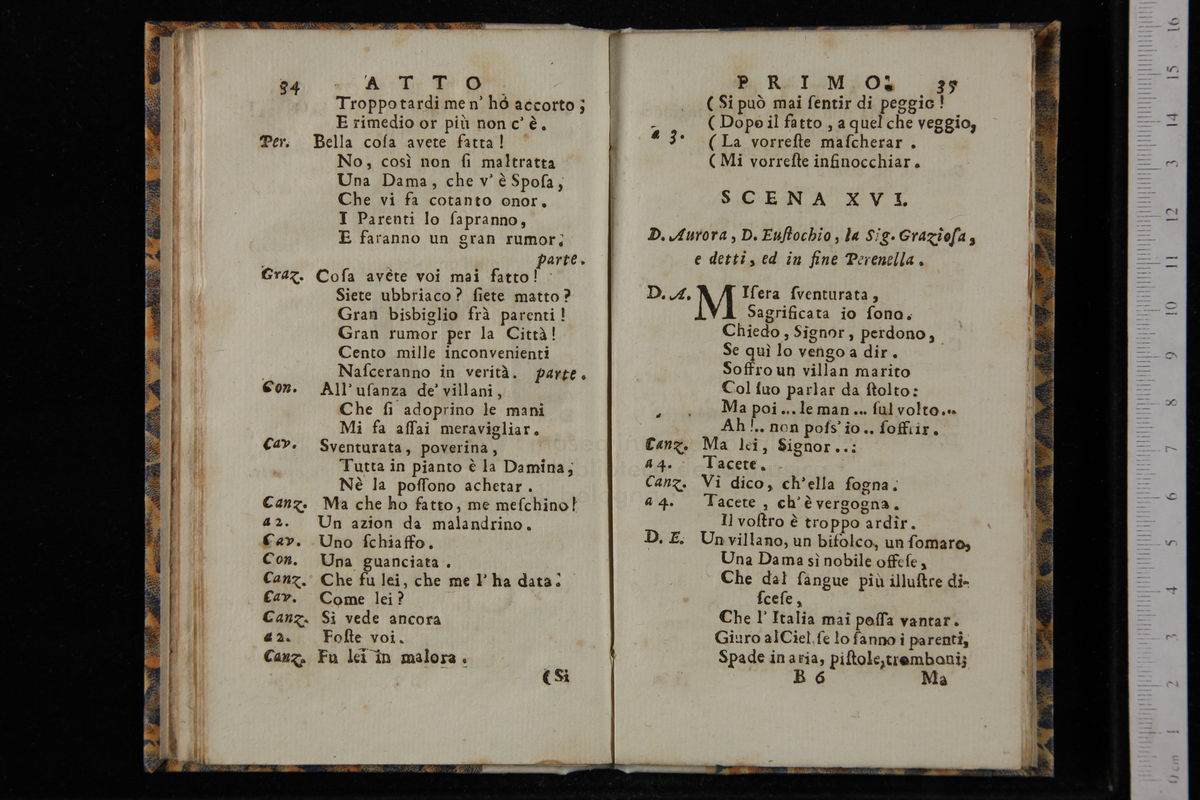 34 ATTO
Troppo tardi me n' hò accorto;
E rimedio or più non c' è.
Per. Bella coſa avete fatta!
No, così non ſi maltratta
Una Dama, che v' è Spoſa,
Che vi fa cotanto onor.
I Parenti lo ſapranno,
E faranno un gran rumor.
parte.
Graz. Coſa avète voi mai fatto!
Siete ubbriaco? ſiete matto?
Gran bisbiglio frà parenti!
Gran rumor per la Città!
Cento mille inconvenienti
Naſceranno in verità. parte.
Con. All' uſanza de' villani,
Che ſi adoprino le mani
Mi fa aſſai meravigliar.
Cav. Sventurata, poverina,
Tutta in pianto è la Damina,
Nè la poſſono achetar.
Canz. Ma che ho fatto, me meſchino!
a 2. Un azion da malandrino.
Cav. Uno ſchiaffo.
Con. Una guanciata.
Canz. Che fu lei, che me l' ha data.
Cav. Come lei?
Canz. Si vede ancora
a 2. Foſte voi.
Canz. Fu lei in malora.
(Si
PRIMO. 35
(Si può mai ſentir di peggio!
(Dopo il fatto, a quel che veggio,
a 3. (La vorreſte maſcherar.
(Mi vorreſte infinocchiar.
SCENA XVI.
D. Aurora, D. Euſtochio, la Sig. Grazioſa,
e detti, ed in fine Perenella.
D. A. MIſera ſventurata,
Sagrificata io ſono.
Chiedo, Signor, perdono,
Se quì lo vengo a dir.
Soffro un villan marito
Col ſuo parlar da ſtolto:
Ma poi ... le man ... ſul volto...
Ah!.. non poſs' io .. ſoffrir.
Canz. Ma lei, Signor...
a 4. Tacete.
Canz. Vi dico, ch'ella ſogna.
a 4. Tacete, ch' è vergogna.
Il voſtro è troppo ardir.
D. E. Un villano, un bifolco, un ſomaro,
Una Dama sì nobile offeſe,
Che dal ſangue più illuſtre di-
ſceſe,
Che l' Italia mai poſſa vantar.
Giuro al Ciel, ſe lo ſanno i parenti,
Spade in aria, piſtole, tromboni;
B 6 Ma
0 cm 1 2 3 4 5 6 7 8 9 10 11 12 13 14 15 16